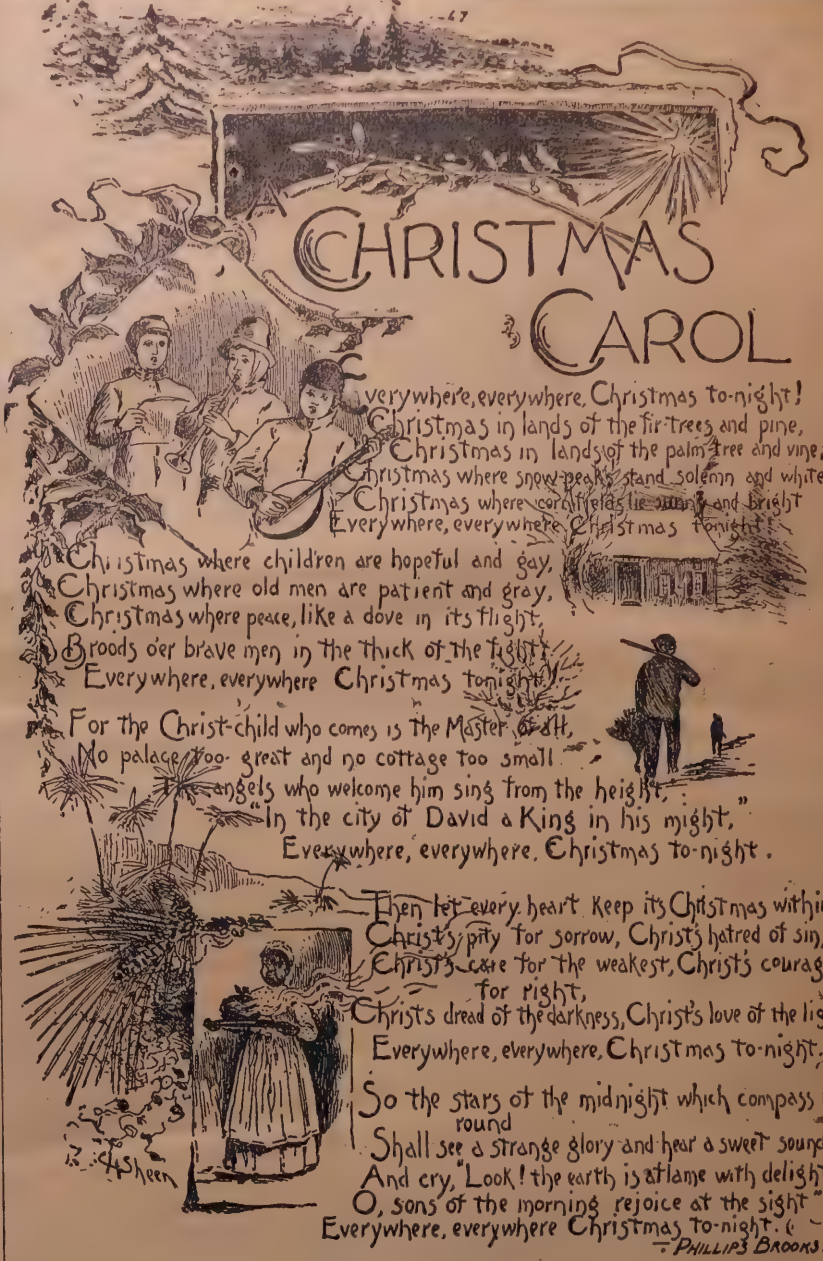 A
CHRISTMAS
CAROL
Everywhere, everywhere, Christmas to-night!
Christmas in lands of the fir-trees and pine,
Christmas in lands of the palm-tree and vine,
Christmas where snow-peaks stand solemn and white
Christmas where cornfields lie sunny and bright
Everywhere, everywhere Christmas tonight!
Christmas where children are hopeful and gay,
Christmas where old men are patient and gray,
Christmas where peace, like a dove in its flight,
Broods o'er brave men in the thick of the fight;
Everywhere, everywhere Christmas tonight!
For the Christ-child who comes is the Master of all,
No palace too great and no cottage too small.
The angels who welcome him sing from the height,
"In the city of David a King in his might,"
Everywhere, everywhere, Christmas to-night.
Then let every heart keep its Christmas within
Christ's pity for sorrow, Christ's hatred of sin,
Christ's care for the weakest, Christ's courag
for right,
Christs dread of the darkness, Christ's love of the lig
Everywhere, everywhere, Christmas to-night.
So the stars of the midnight which compass
round
Shall see a strange glory and hear a sweet sound
And cry, "Look! the earth is aflame with deligh
O, sons of the morning rejoice at the sight"
Everywhere, everywhere Christmas to-night.
- PHILLIPS BROOKS.
Sheen